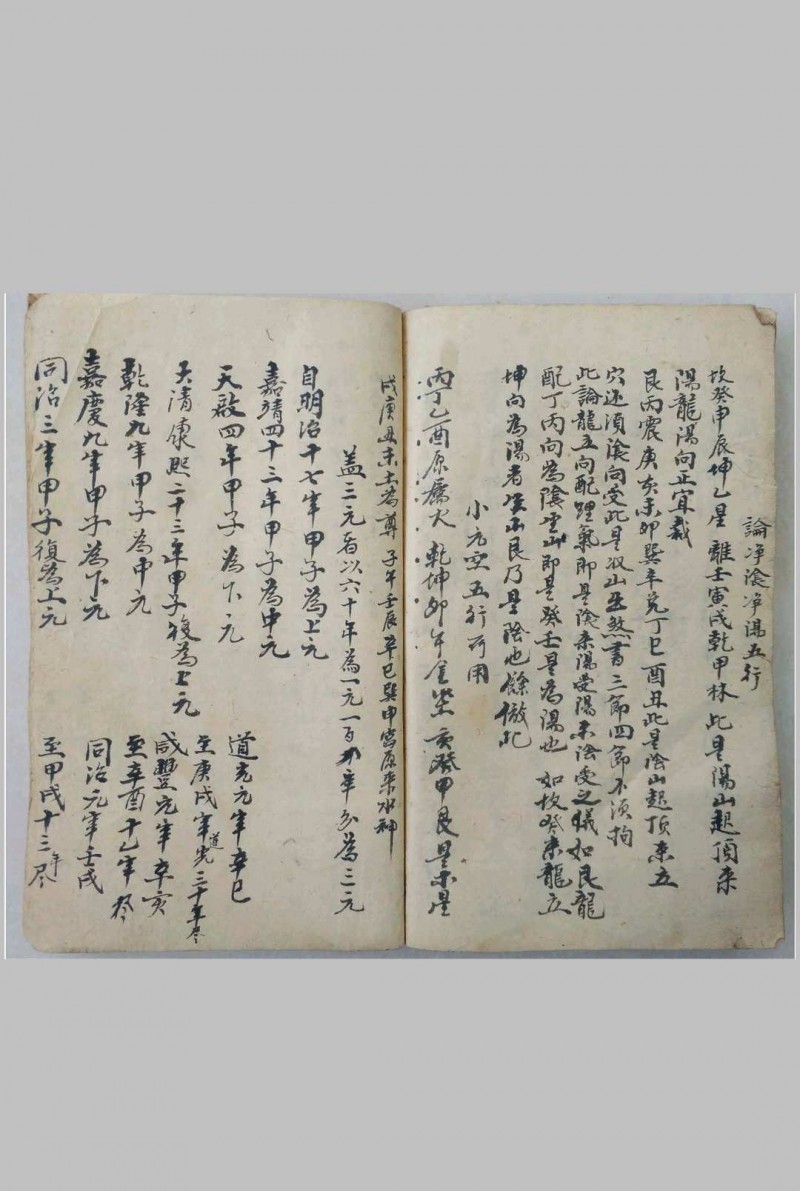 論净陰净陽五行
坎癸申辰坤乙星 離壬寅戌乾甲林 此是陽山起頂来
陽龍陽向正宜裁
艮丙震庚亥未卯巽辛兌丁巳酉丑此是陰山起頂来立
穴还須陰向受此是収山出煞書三節四節不須拘
此論龍立向配理氣即是陰来陽受陽来陰受之儀如艮龍
配丁丙向為陰坐山即是癸壬是為陽也 如坎癸来龍立
坤向為陽者坐山艮乃是陰也餘倣此
小元空五行可用
丙丁乙酉原屬火 乾坤卯午金 亥癸甲艮是木星
戌庚丑未土為尊 子午壬辰辛巳巽申宮原来水神
盖三元者以六十年為一元一百八十年為三元
自明治十七年甲子為上元
嘉靖四十三年甲子為中元
天啟四年甲子為下元
大清康熙二十三年甲子復為上元
乾隆九年甲子為中元
嘉慶九年甲子為下元
同治三年甲子復為上元
道光元年辛巳
至庚戌年道光三十年尽
咸豐元年辛亥
至辛酉十一年尽
同治元年壬戌
至甲戌十三年尽